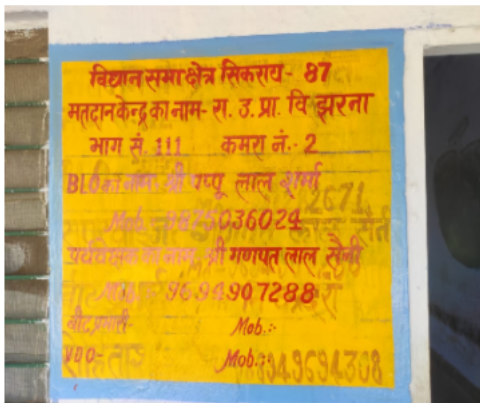 विधानसभा क्षेत्र सिकराय- 87
मतदान केन्द्र का नाम- रा. उ. प्रा. वि झरना
भाग सं. 111 कमरा नं.- 2
BLO का नाम श्री पप्पू लाल शर्मा
Mob. 9875036024
पर्यवेक्षक का नाम श्री गणपत लाल सैनी
Mob. 9694907288
बीट प्रभारी- Mob.:-
VDO- Mob.:-